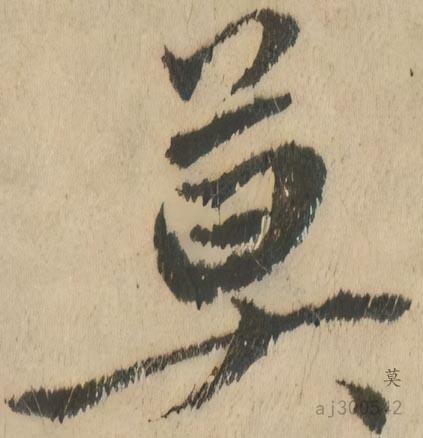 莫
莫
aj300542